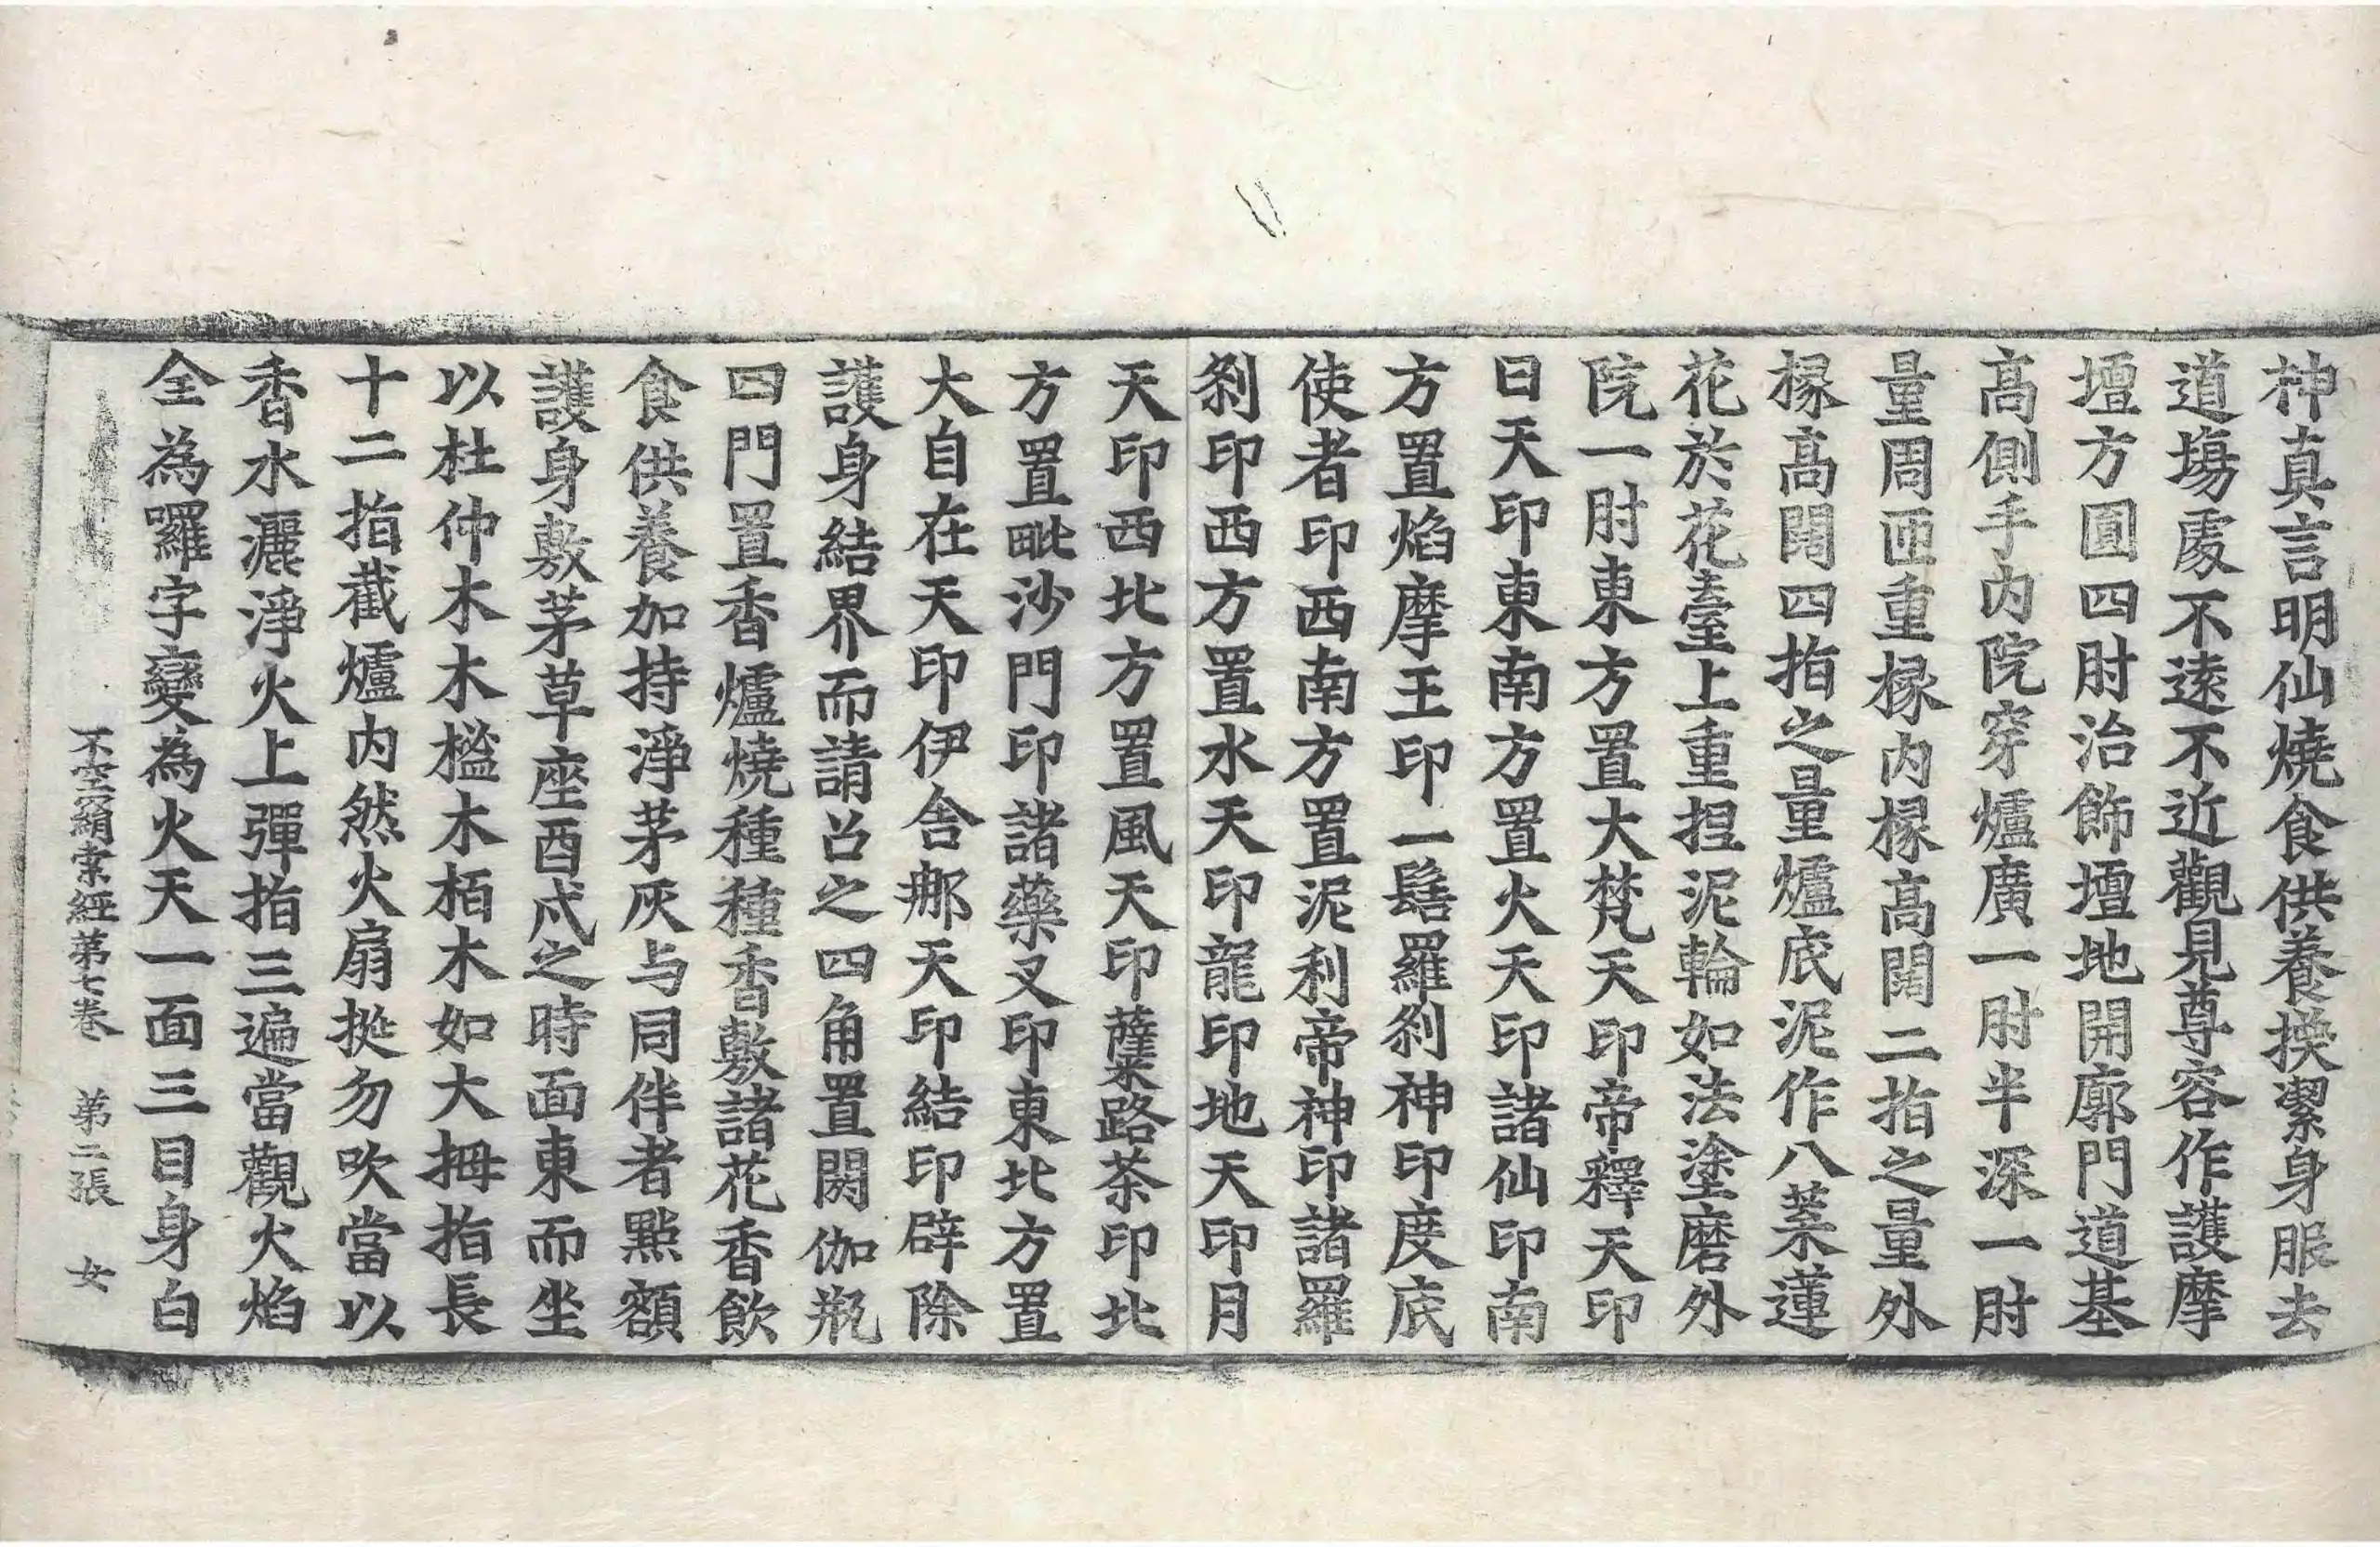 神真言明仙燒食供養換潔身服去
道場處不遠不近觀見尊容作護摩
壇方圓四肘治飾壇地開廓門道基
高側手內院穿爐廣一肘半深一肘
量周匝重椽內椽高闊二指之量外
椽高闊四指之量爐底泥作八葉蓮
花於花臺上重捏泥輪如法塗磨外
院一肘東方置大梵天印帝釋天印
日天印東南方置火天印諸仙印南
方置焰摩王印一髻羅剎神印度底
使者印西南方置泥利帝神印諸羅
剎印西方置水天印龍印地天印月
天印西北方置風天印蘖路茶印北
方置毗沙門印諸藥叉印東北方置
大自在天印伊舍那天印結印辟除
護身結界而請召之四角置閼伽瓶
四門置香爐燒種種香敷諸花香飲
食供養加持淨茅灰与同伴者點額
護身敷茅草座酉戌之時面東而坐
以杜仲木木檻木栢木如大拇指長
十二指截爐內然火扇挻勿吹當以
香水灑淨火上彈指三遍當觀火焰
全為囉字變為火天一面三目身白
不空羂索經第七卷　第二張　女